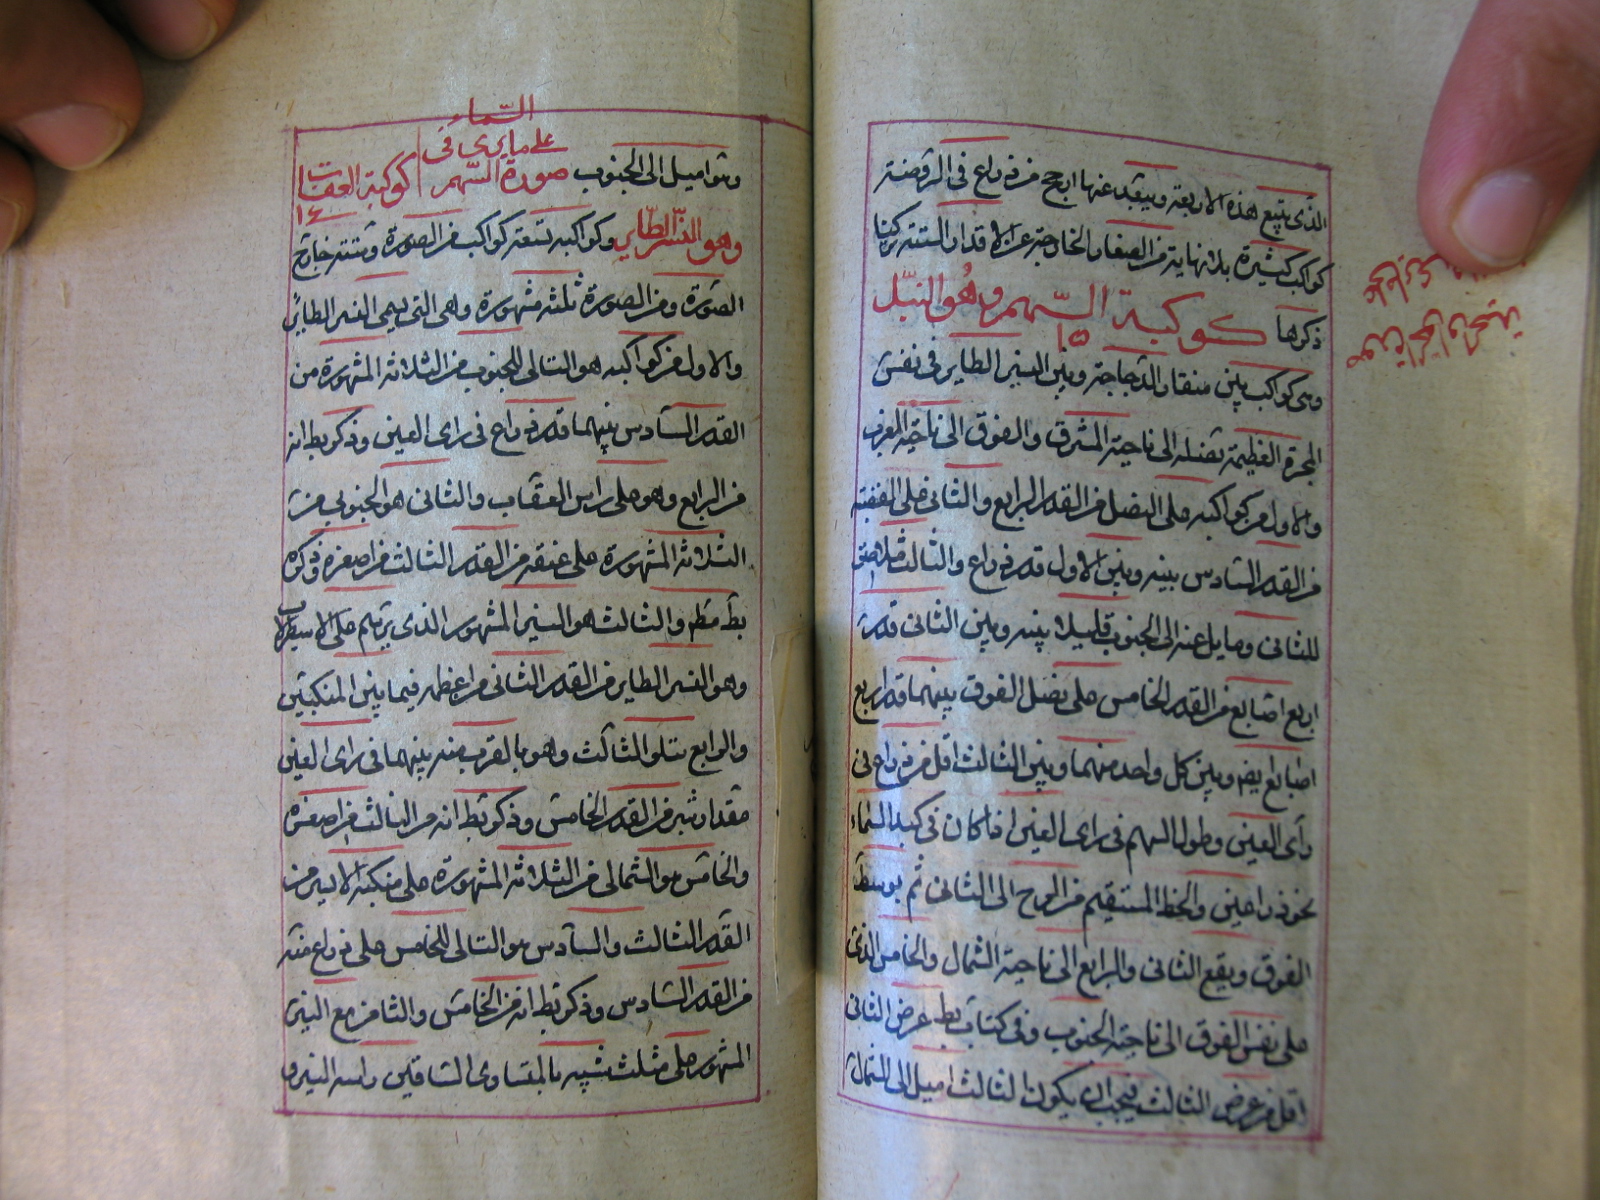 الذى يتبع هذه الاربعة ويبعد عنها ارجح من ذراع فى الرقعة
كواكب كثيرة بلا نهاية من الصغار الخارجة عن الاقدار الستة تركنا
ذكرها كوكبة السهم وهو النبل ١٥
وهى كواكب بين منقار الدجاجة وبين النسر الطاير فى نفس
المجرة العظيمة نصله الى ناحية المشرق والفوق الى ناحية المغرب
والاول من كواكبه على النصل من القدر الرابع والثانى على
من القدر السادس بينه وبين الاول قدر ذراع والثالث
للثانى ومايل عنه الى الجنوب قليلا بينه وبين الثانى قدر
اربع اصابع من القدر الخامس على نصل الفوق بينهما قدر اربع
اصابع ايض وبين كل واحد منهما وبين الثالث اقل من ذراع فى
راى العين وطول السهم فى راى العين اذا كان فى كبد السماء
نحو ذراعين والخط المستقيم من الرج الى الثانى ثم بوسط
الفوق ويقع الثانى والرابع الى ناحية الشمال والخامس الذى
على نفس الفوق الى ناحية الجنوب وفى كتاب بط عرض الثانى
اقل من عرض الثالث فيجب ان يكون الثالث اميل الى الشمال
وهو اميل الى الجنوب صورة السهم على ما يرى فى السماء كوكبة العقاب ١٤
وهو النسر الطاير وكواكبه تسعة كواكب من الصورة وستة خارج
الصورة ومن الصورة ثلثه مشهورة وهى التى يسمى النسر الطاير
والاول من كواكبه هو التالى للجنوب من الثلاثة المشهورة من
القدر السادس بينهما قدر ذراع فى راى العين وذكر بط انه
من الرابع وهو على راس العقاب والثانى هو الجنوبى من
الثلاثة المشهورة على عنقه من القدر الثالث من اصغره وذكره
بط مطم والثالث هو النير المشهور الذى يرتسم على الاسطرلاب
وهو النسر الطاير من القدر الثانى من اعظمه فيما بين المنكبين
والرابع يتلو الثالث وهو بالقرب منه بينهما فى راى العين
مقدار شبر من القدر الخامس وذكر بط انه من الثالث من اصغره
والخامس هو الشمالى من الثلاثة المشهورة على منكبه الايسر من
القدر الثالث والسادس هو التالى للخامس على ذراع منه
من القدر السادس وذكر بط انه من الخامس والثامن مع النير
المشهور على مثلث شبيه بالمتساوى الساقين راسه النير و